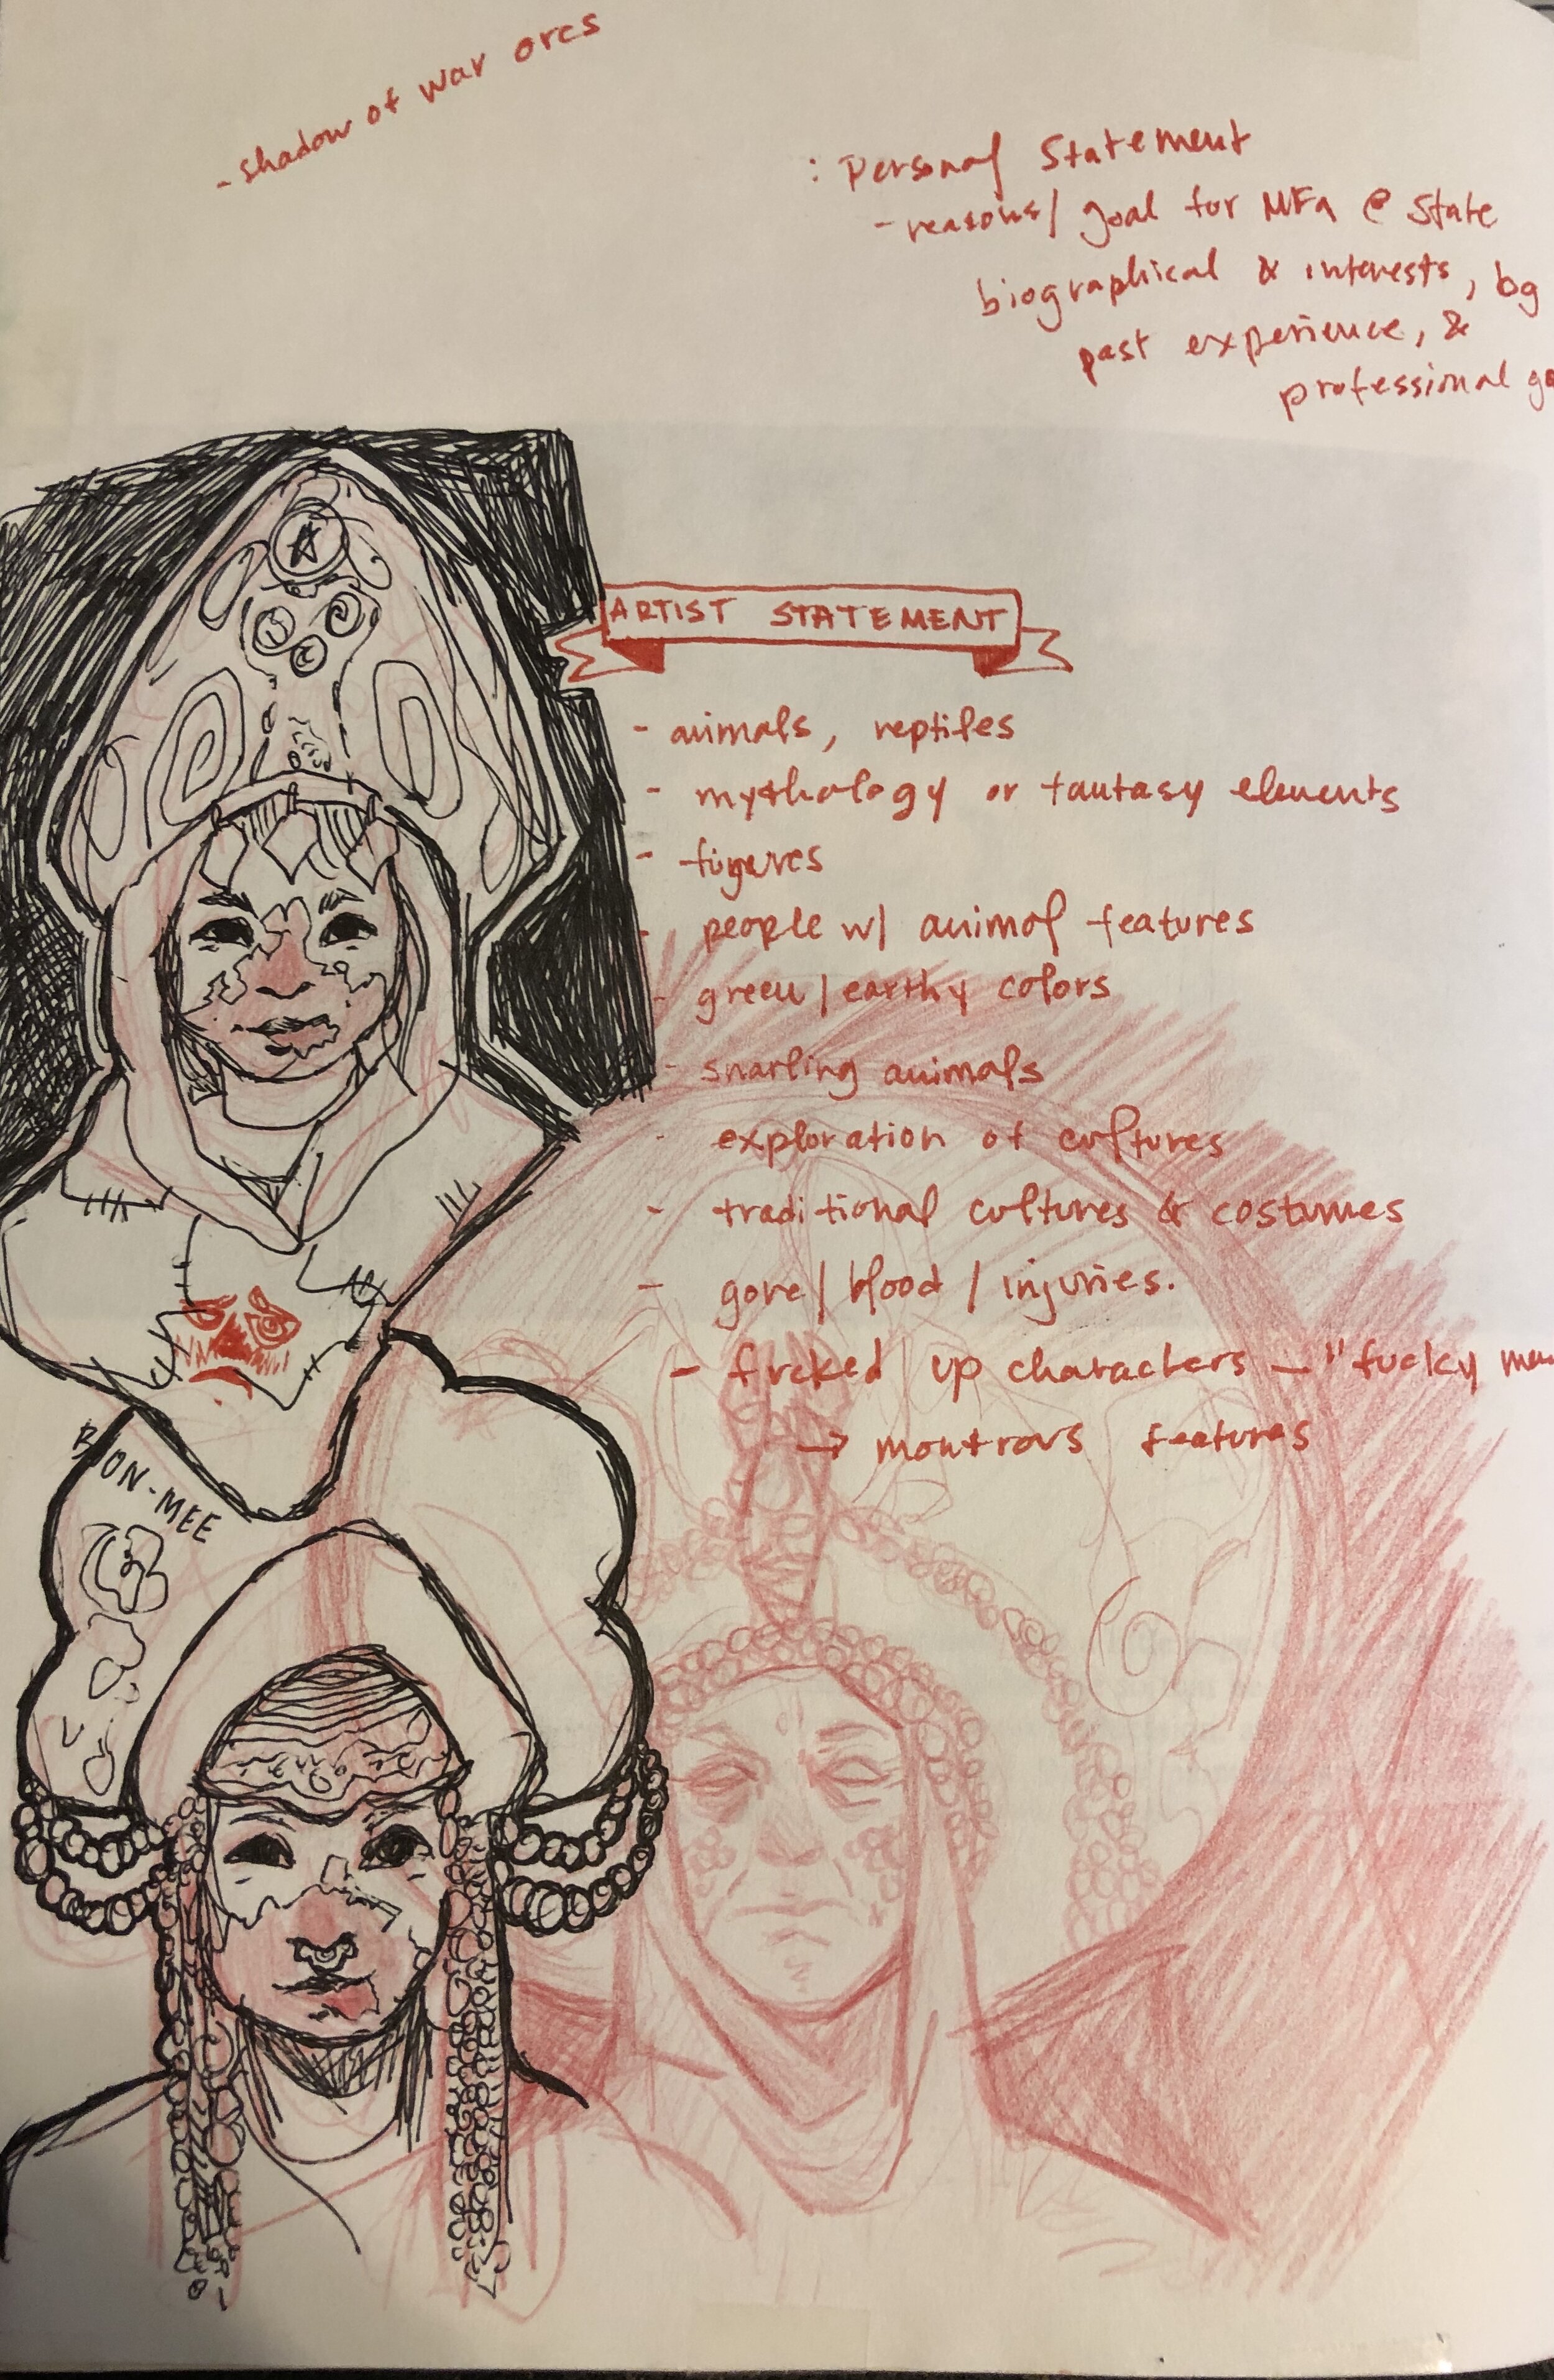 - shadow of war orcs
: Personal Statement
- reasons/ goal for MFA @ State
biographical & interests, bg
past experience, &
professional go
ARTIST STATEMENT
- animals, reptiles
- mythology or fantasy elements
- figures
- people w/ animal features
- green / earthy colors
- snarling animals
- exploration of cultures
- traditional cultures & costumes
- gore / blood / injuries.
- fucked up characters — "fucky
→ montrous features
BON-MEE